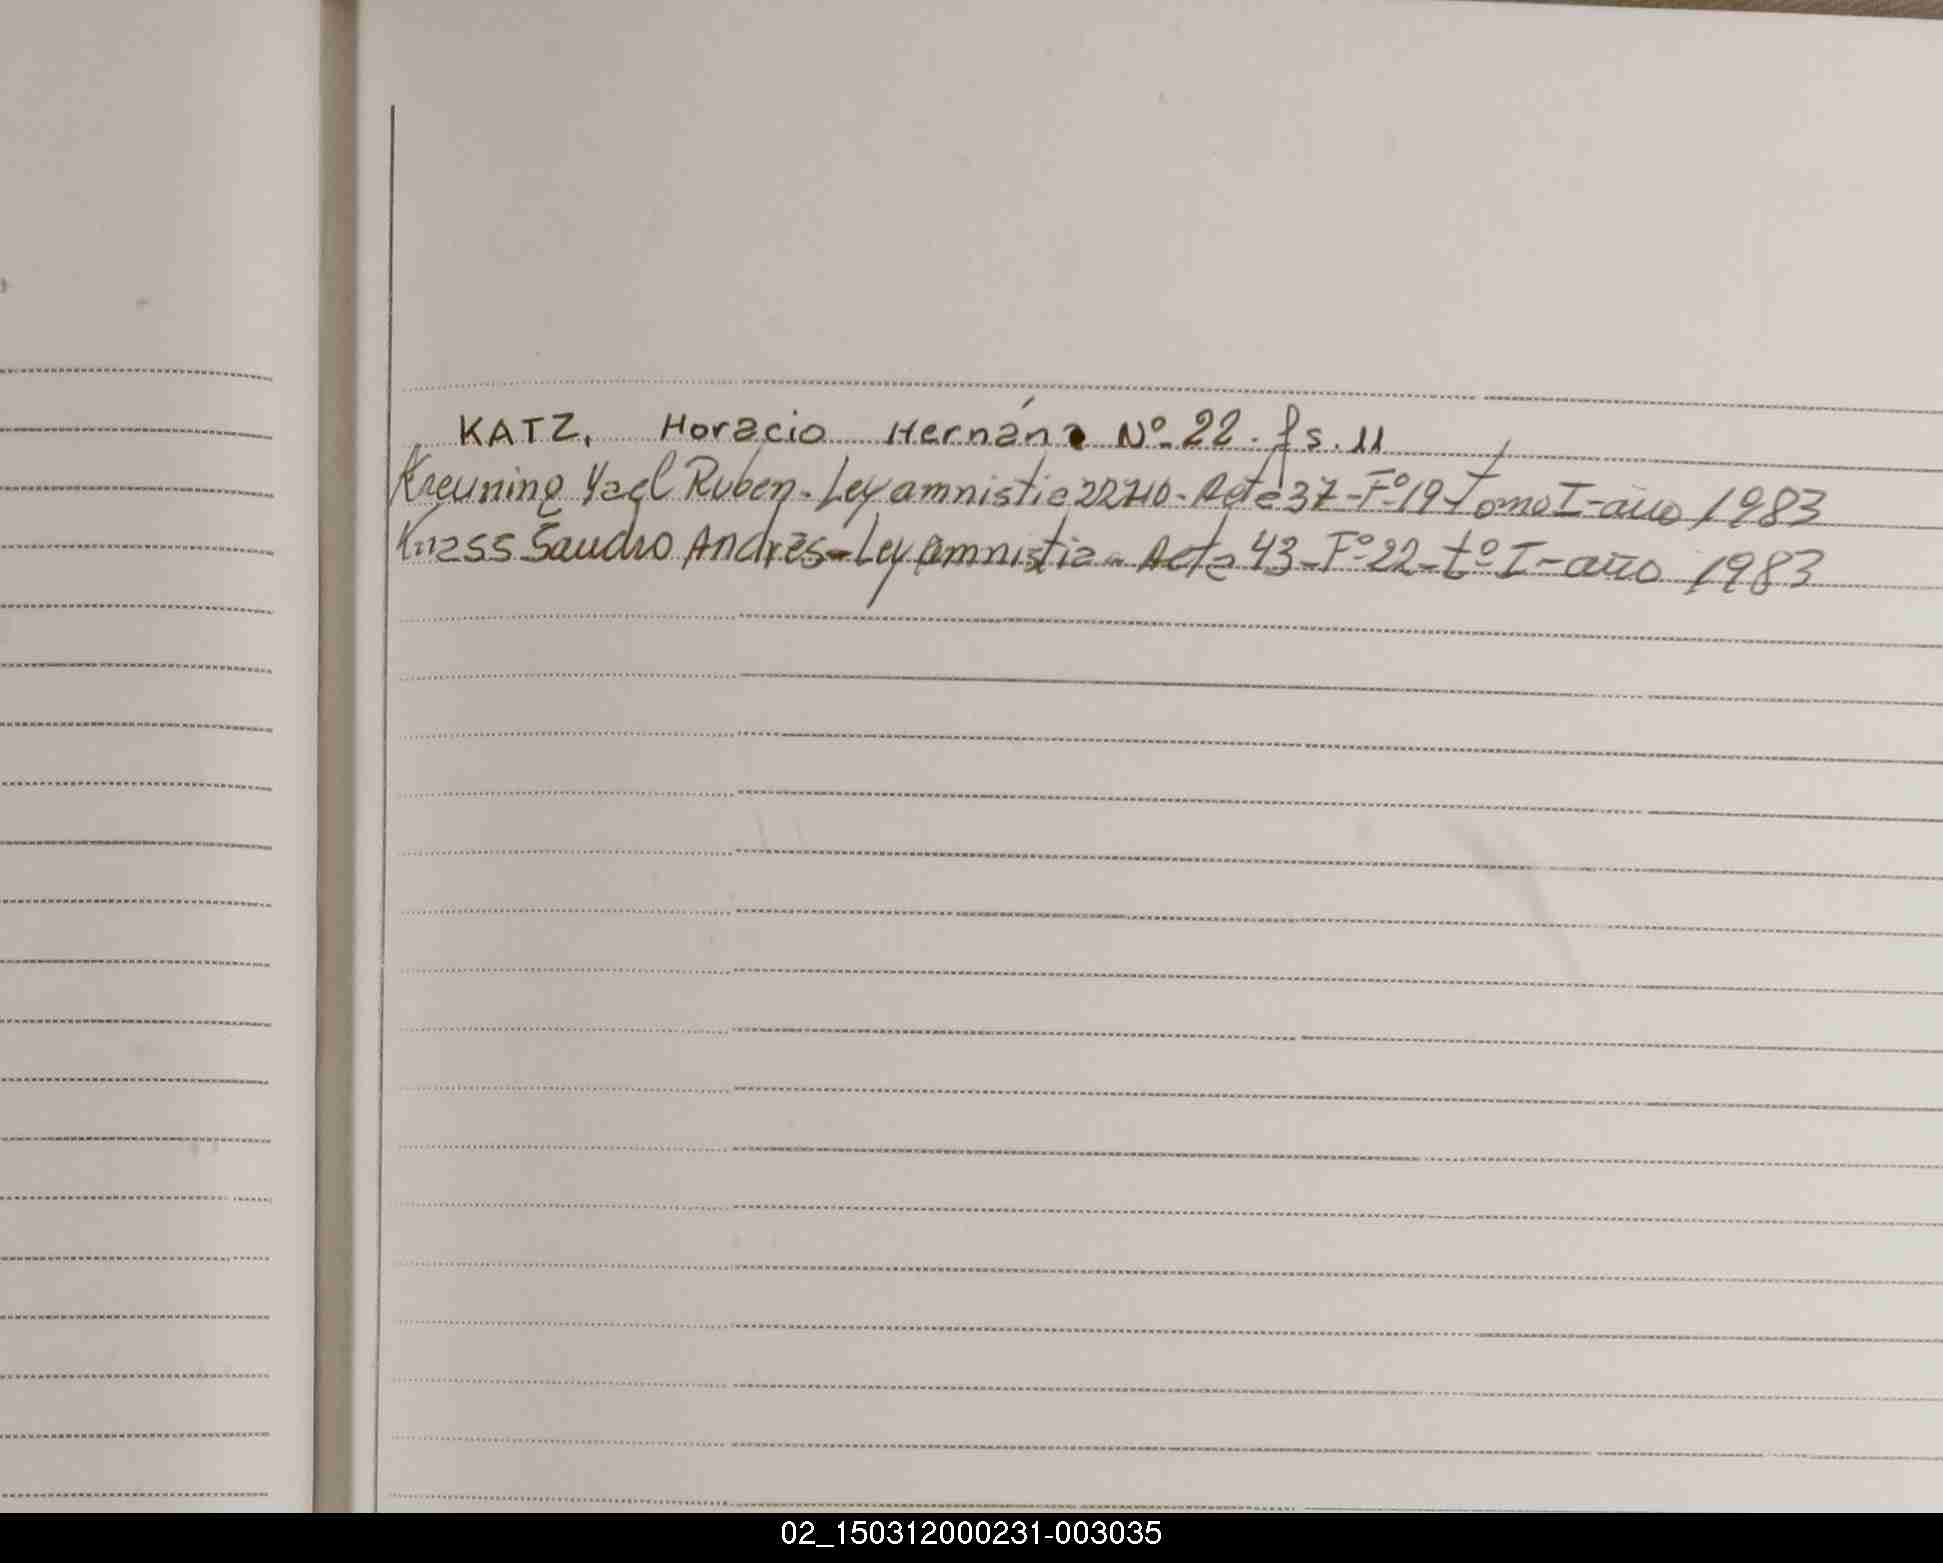 KATZ, Horacio Hernán Nº 22. fs. 11
Kreuning Yael Ruben - Ley amnistia 22710 - Acta 37 - Fº 19 - Tomo I - año 1983
Knass Sandro Andrés - Ley amnistia - Acta 43 - Fº 22 - tº I - año 1983
02_150312000231-003035